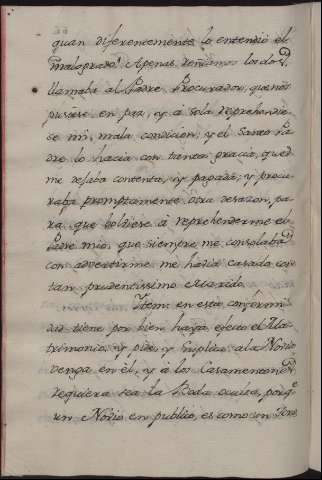 quan diferentemente lo entendió el
malogrado! Apenas reniamos los dos,
llamaba al Padre Procurador, que nos
pusiese en paz, y à sola reprehendie-
se mi mala condicion; y el Santo Pa-
dre lo hacia con tanta gracia, que
me dejaba contenta, y pagada; y procu-
raba promptamente otra desazon, pa-
ra que bolviese á reprehenderme el
Padre mio, que siempre me consolaba
con advertirme me havia casado con
tan prudentissimo Marido.
Item: en esta conformi-
dad tiene por bien haya efecto el Ma-
trimonio, y pide, y suplica à la Novia
venga en èl, y à los Casamenteros
requiera sea la Boda oculta, porq.e
un Novio en publico, es como un Toro